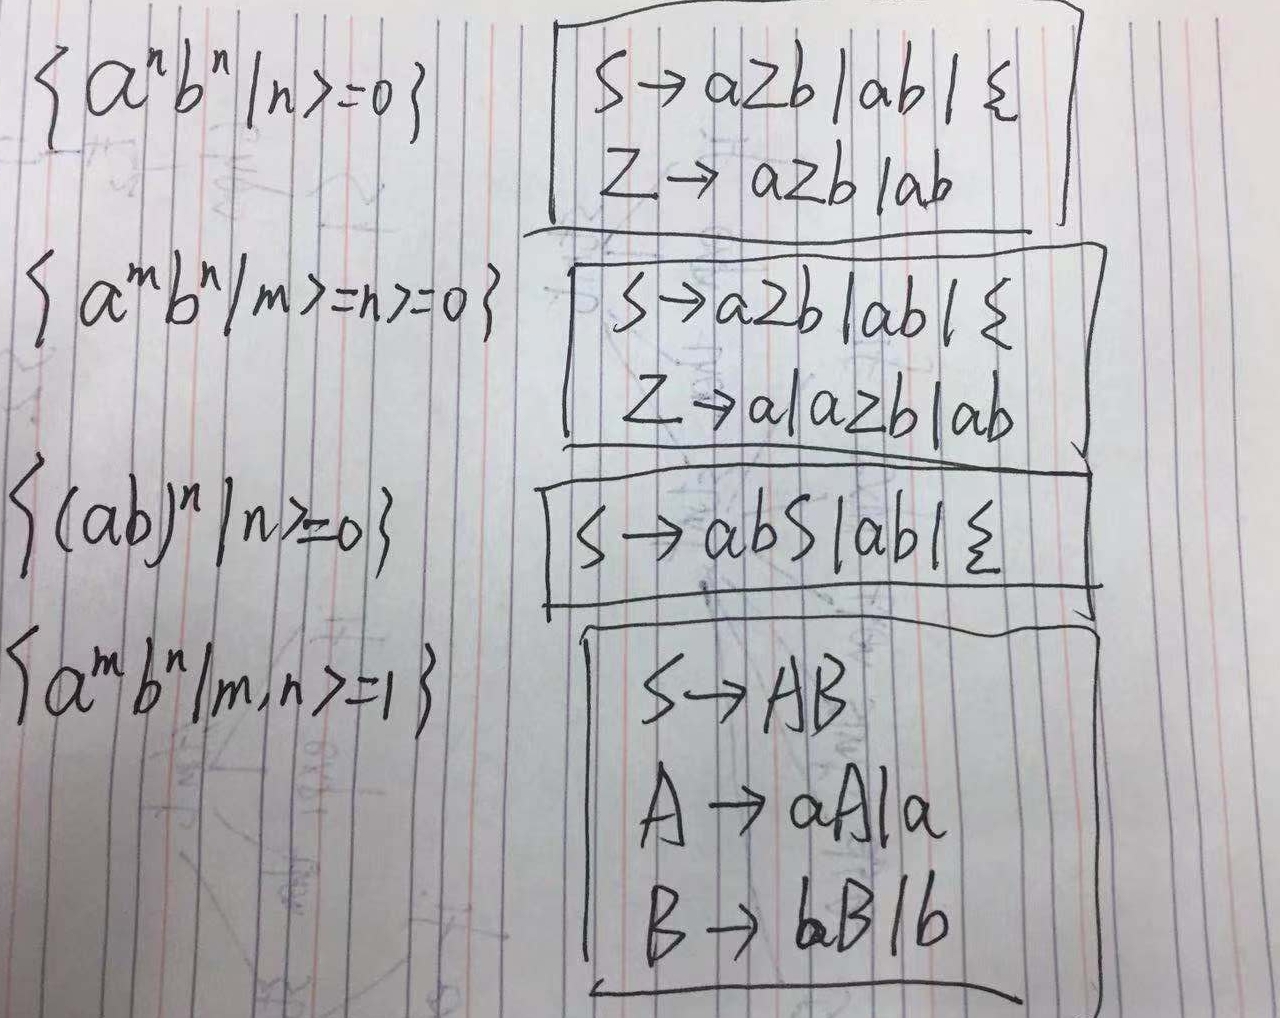 { aⁿbⁿ | n >= 0 }
S → aZb | ab | ξ
Z → aZb | ab
{ aᵐbⁿ | m >= n >= 0 }
S → aZb | ab | ξ
Z → a | aZb | ab
{ (ab)ⁿ | n >= 0 }
S → abS | ab | ξ
{ aᵐbⁿ | m, n >= 1 }
S → AB
A → aA | a
B → bB | b